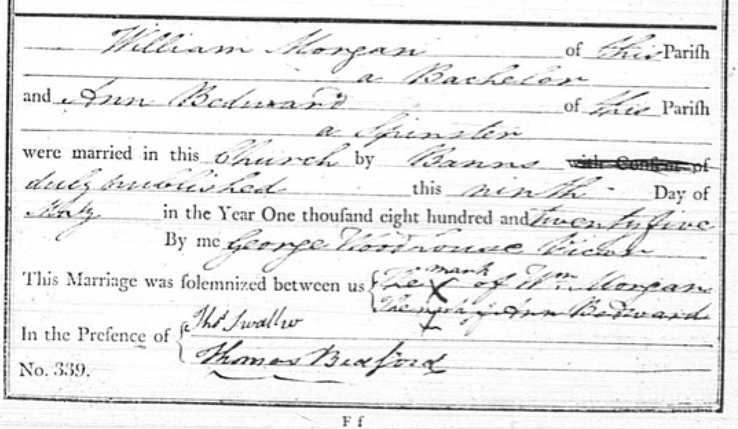 William Morgan of this Pariſh
a Bachelor
and Ann Bedward of this Pariſh
a Spinster
were married in this Church by Banns with Conſent of
duly published this ninth Day of
May in the Year One thouſand eight hundred and twenty five
By me George Woodhouse Vicar
This Marriage was ſolemnized between us The mark X of Wm Morgan
The mark of Ann Bedward
In the Preſence of Thos Swallw
Thomas Bedford
No. 339.
F f